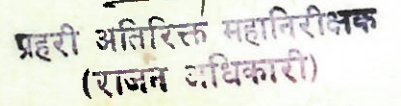 प्रहरी अतिरिक्त महानिरीक्षक
(राजन अधिकारी)